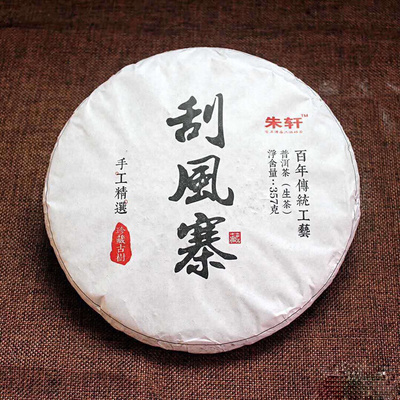 朱轩™
百年傳統工藝
普洱茶（生茶）
淨含量：357克
刮風寨
手工精選
珍藏古樹